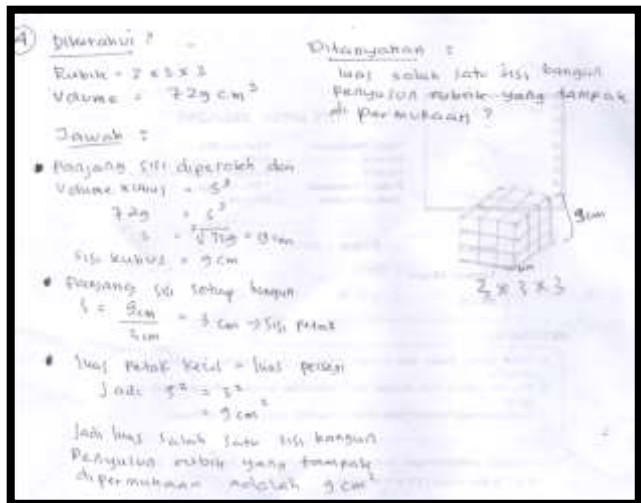 4 Diketahui :
Rubik = 3 x 3 x 3
Volume = 729 cm³
Ditanyakan :
luas salah satu sisi bangun
penyusun rubik yang tampak
di permukaan ?
Jawab :
• Panjang sisi diperoleh dari
Volume kubus = s³
729 = s³
s = ³√729 = 9 cm
sisi kubus = 9 cm
9cm
3 x 3 x 3
• Panjang sisi setiap bangun
s = 9cm / 3cm = 3 cm → sisi petak
• luas petak kecil = luas persegi
Jadi s² = 3²
= 9 cm²
Jadi luas salah satu sisi bangun
Penyusun rubik yang tampak
dipermukaan adalah 9 cm²